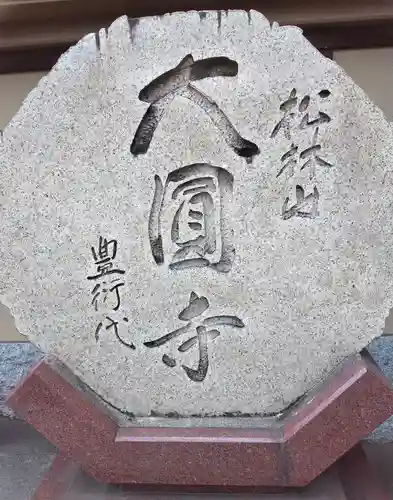 松林山
大圓寺
豊衍代